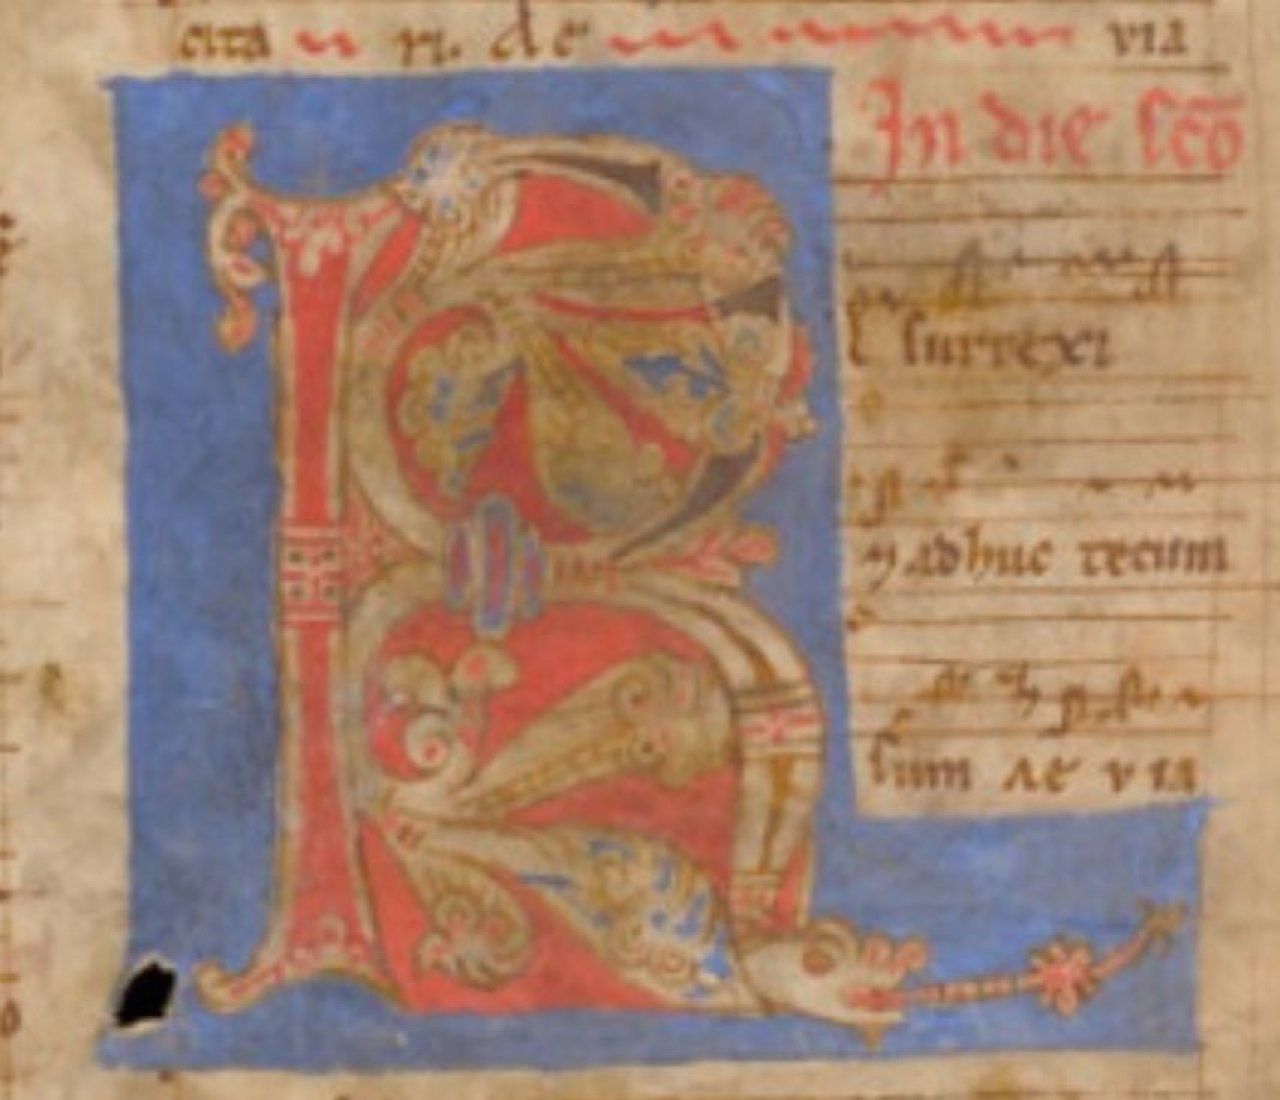 cita ri. de via
In die scō
R surrexi
& adhuc tecum
sum ae via